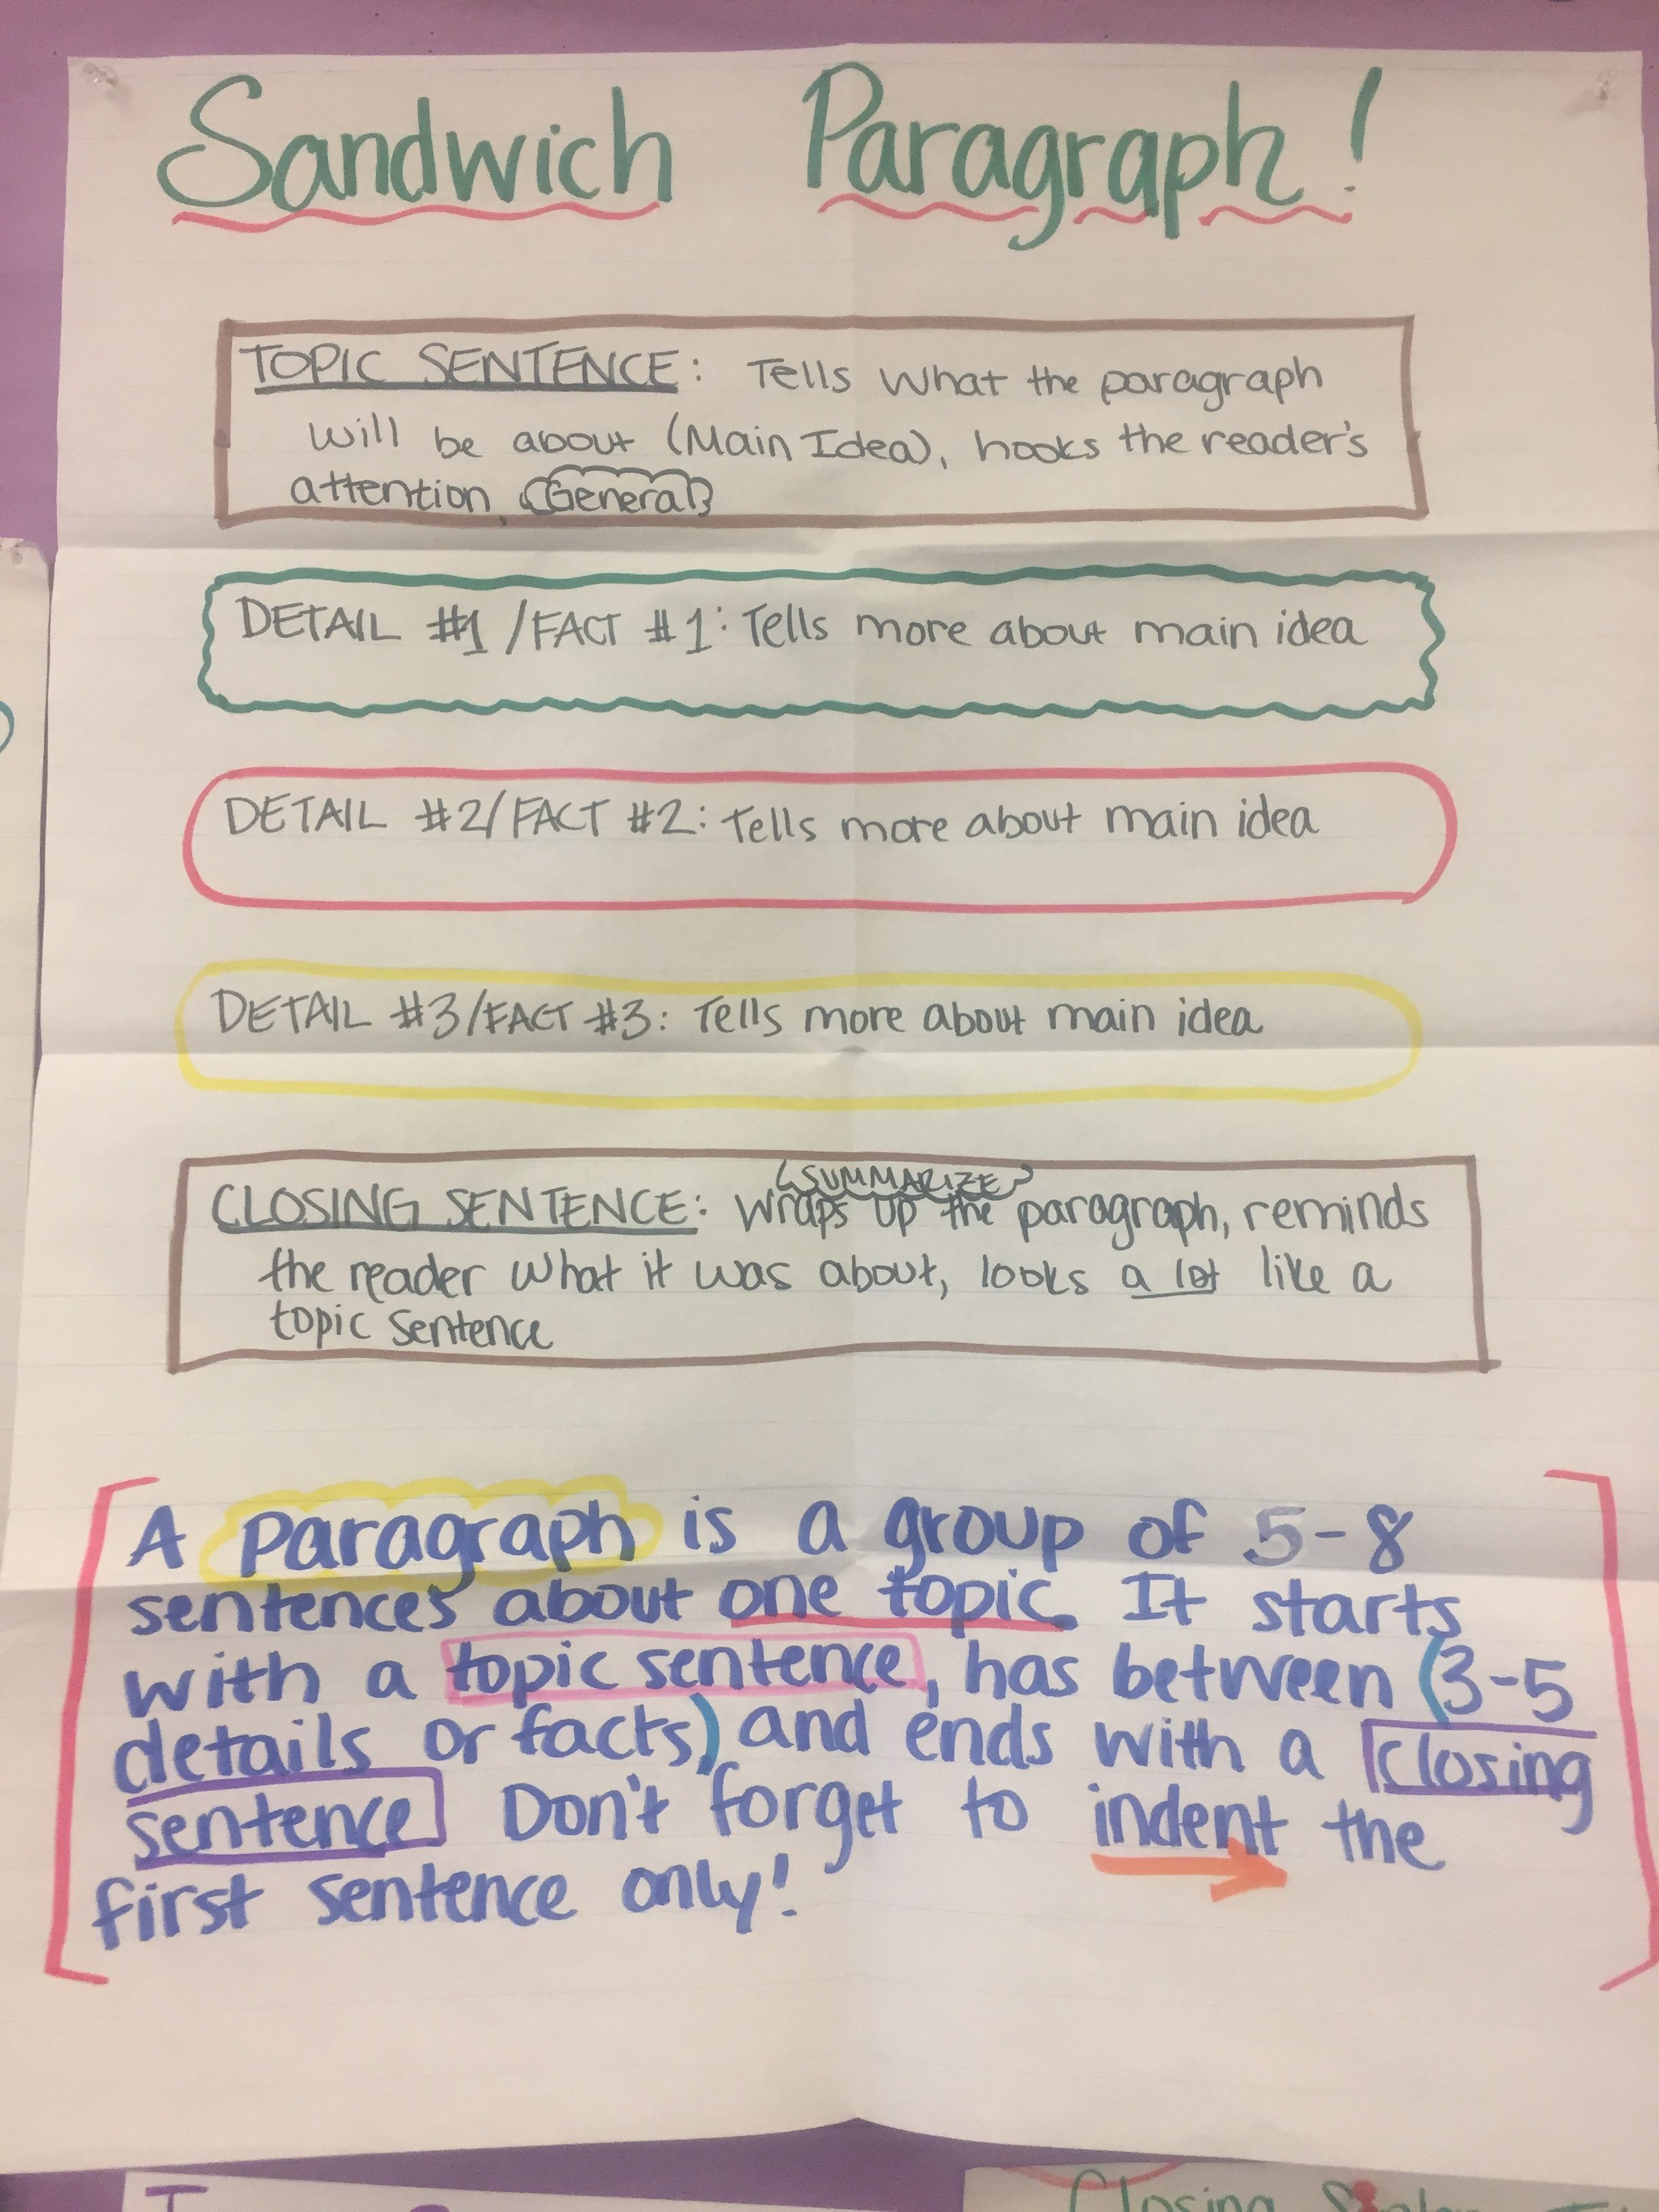 Sandwich Paragraph!
TOPIC SENTENCE: Tells what the paragraph
will be about (Main Idea), hooks the reader's
attention, General
DETAIL #1/FACT #1: Tells more about main idea
DETAIL #2/FACT #2: Tells more about main idea
DETAIL #3/FACT #3: Tells more about main idea
SUMMARIZE
CLOSING SENTENCE: Wraps up the paragraph, reminds
the reader what it was about, looks a lot like a
topic sentence
A paragraph is a group of 5-8
sentences about one topic. It starts
with a topic sentence, has between (3-5
details or facts) and ends with a closing
sentence Don't forget to indent the
first sentence only!
Closing